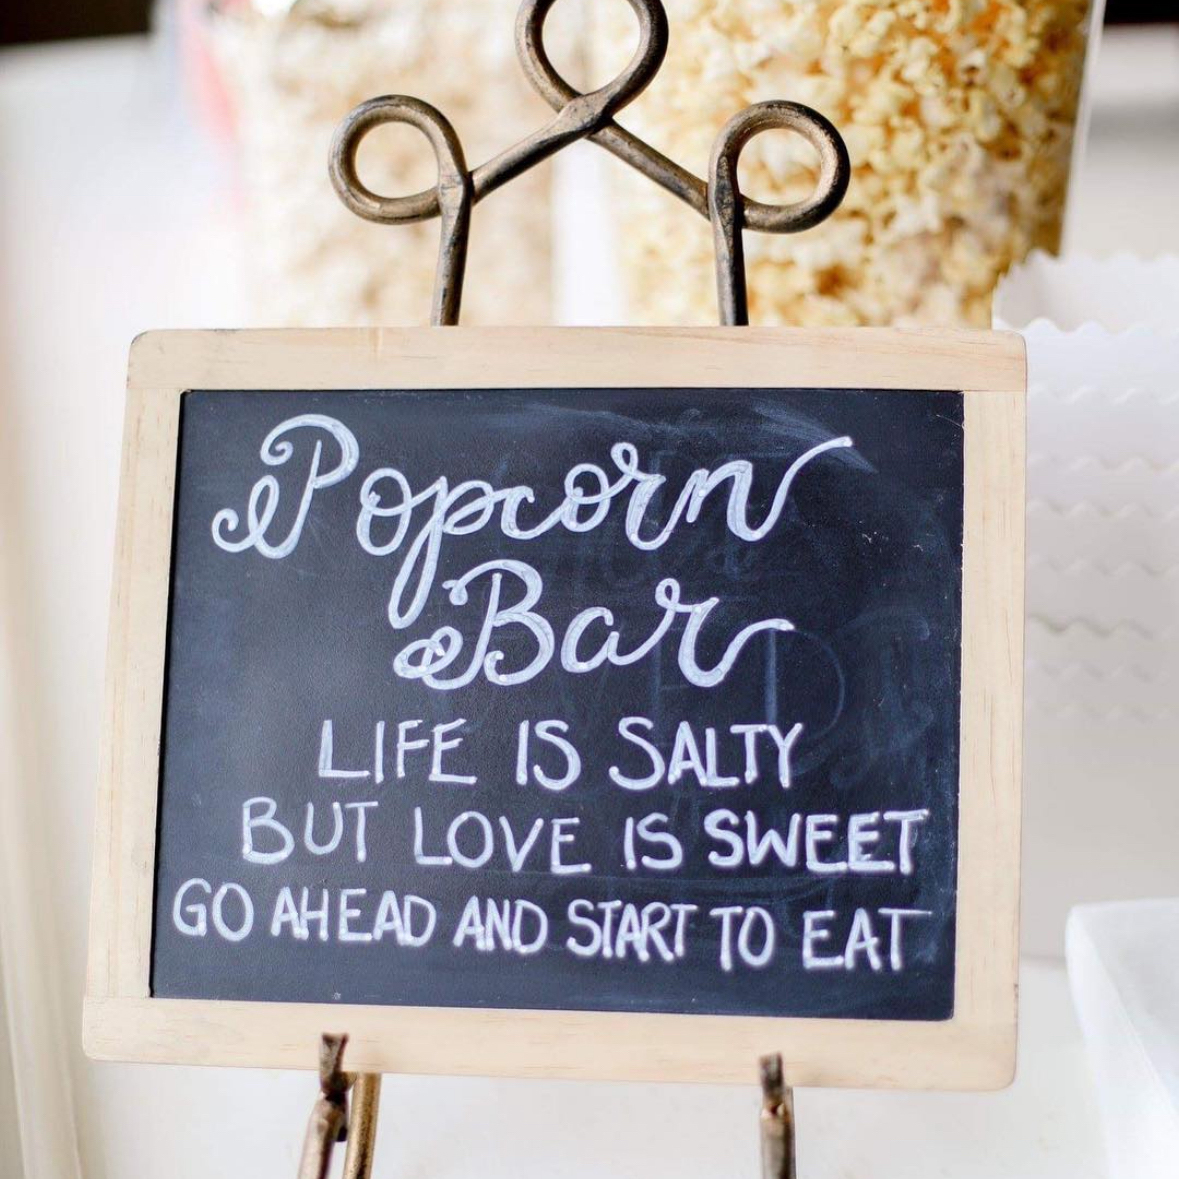 Popcorn
Bar
LIFE IS SALTY
BUT LOVE IS SWEET
GO AHEAD AND START TO EAT